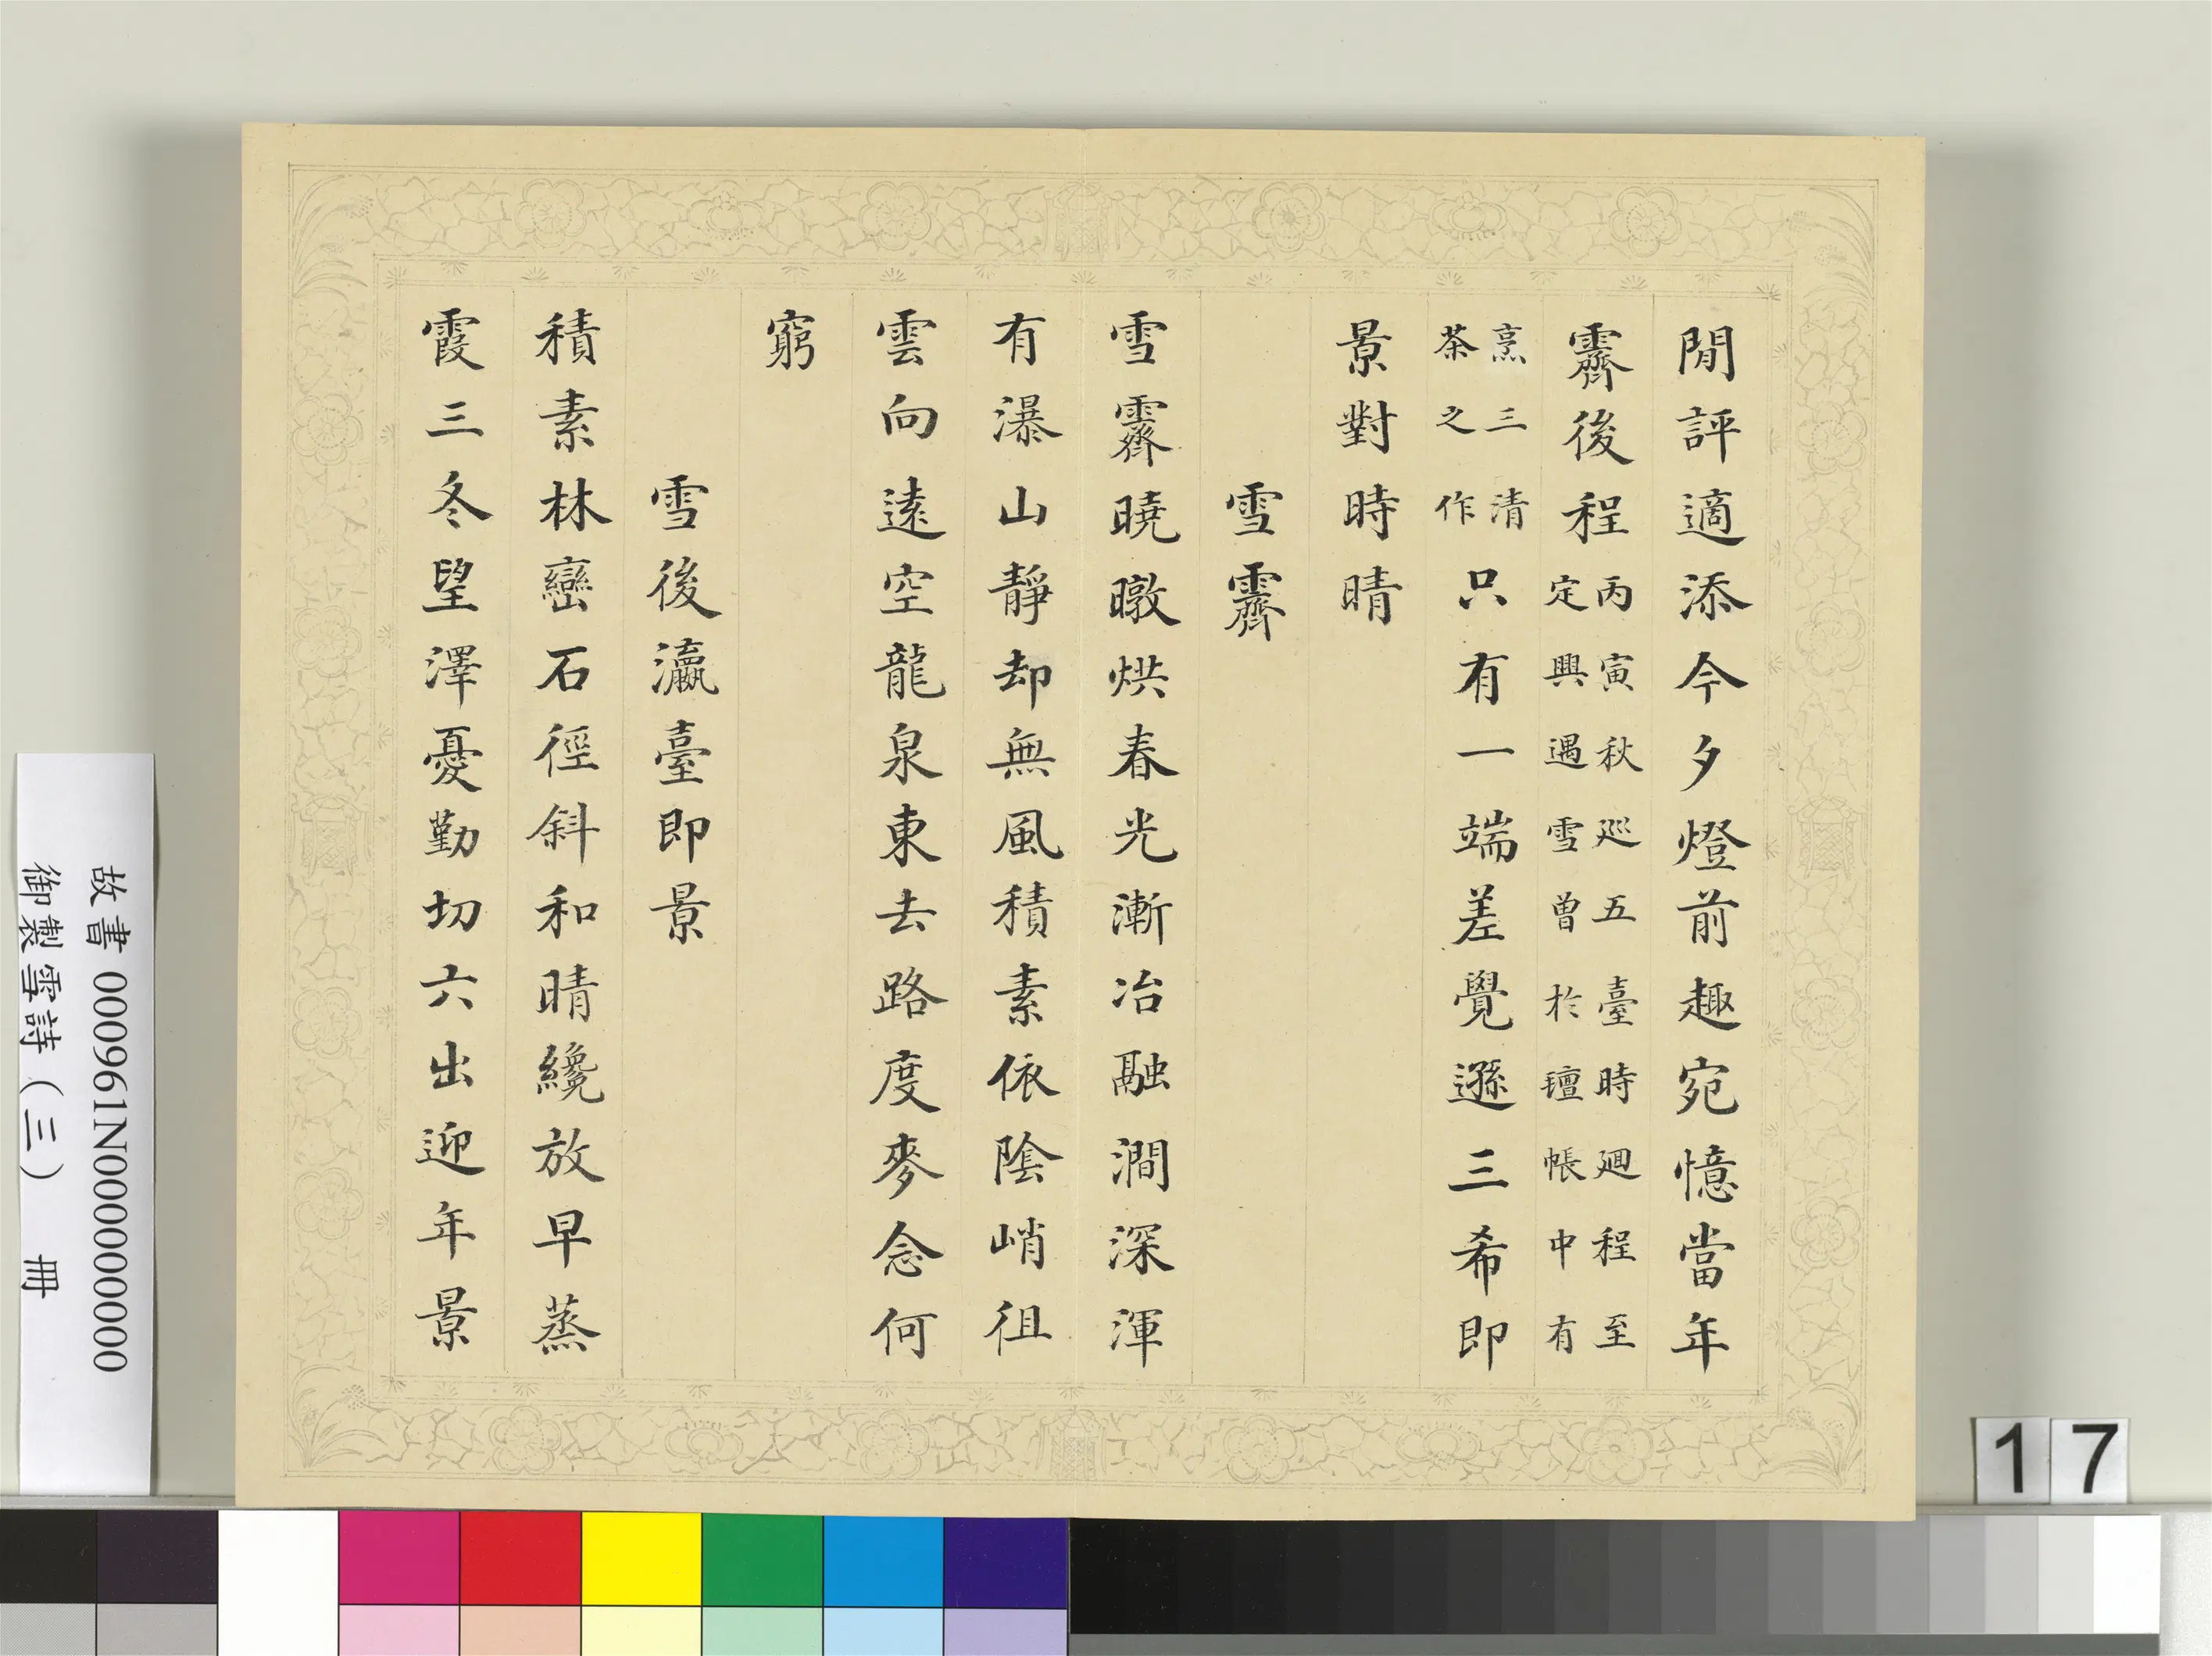 閒評適添今夕燈前趣宛憶當年
霽後程丙寅秋廵五臺時廻程至
定興遇雪曾於氊帳中有
烹三清
茶之作只有一端差覺遜三希即
景對時晴
雪霽
雪霽曉暾烘春光漸冶融澗深渾
有瀑山靜却無風積素依陰峭徂
雲向遠空龍泉東去路度麥念何
窮
雪後瀛臺即景
積素林巒石徑斜和晴纔放早蒸
霞三冬望澤憂勤切六出迎年景
故書 000961N000000000
御製雪詩（三） 冊
17